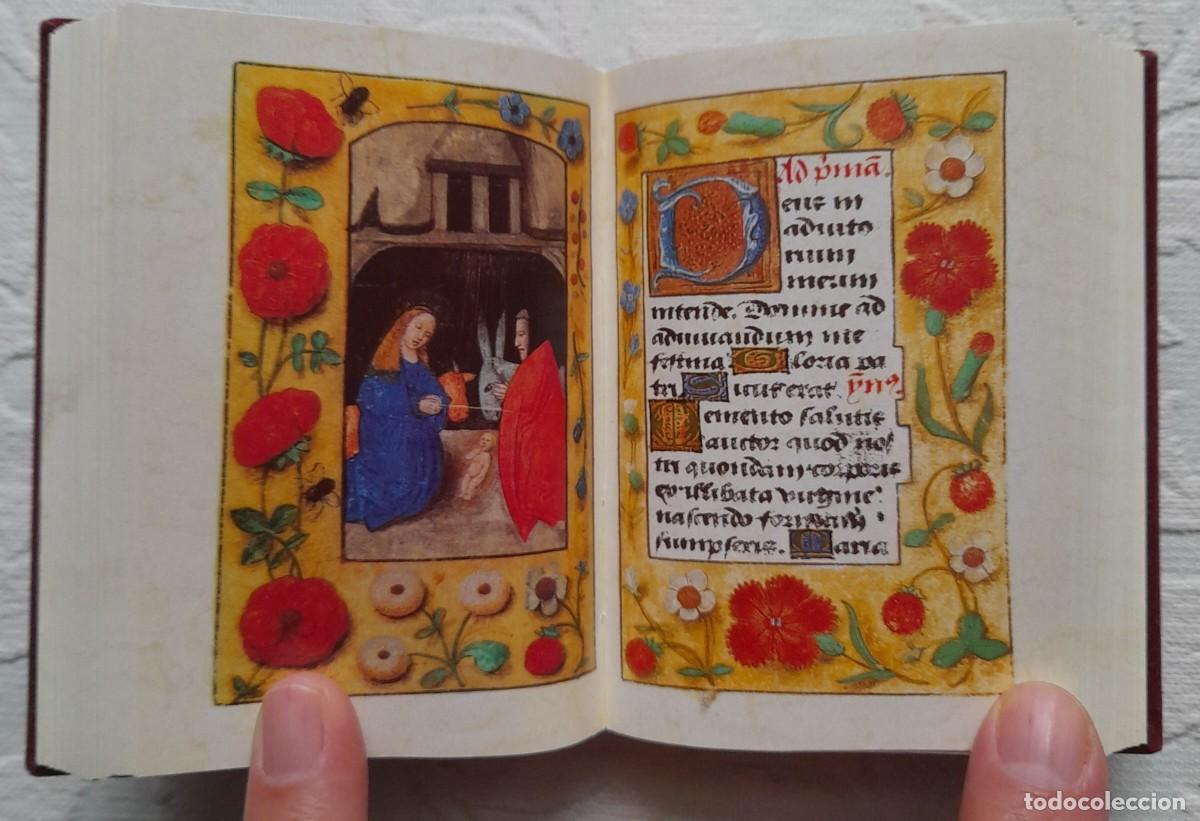 Ad p̄mā.
Deus in
adiuto
rium
meum
intende. Domine ad
adiuuandum me
festina. Gloria pa
tri Sicut erat. ymꝰ
Memento salutis
auctor quod nos
tri quondam corporis
ex illibata virgine
nascendo formam
sumpseris. Maria
todocoleccion